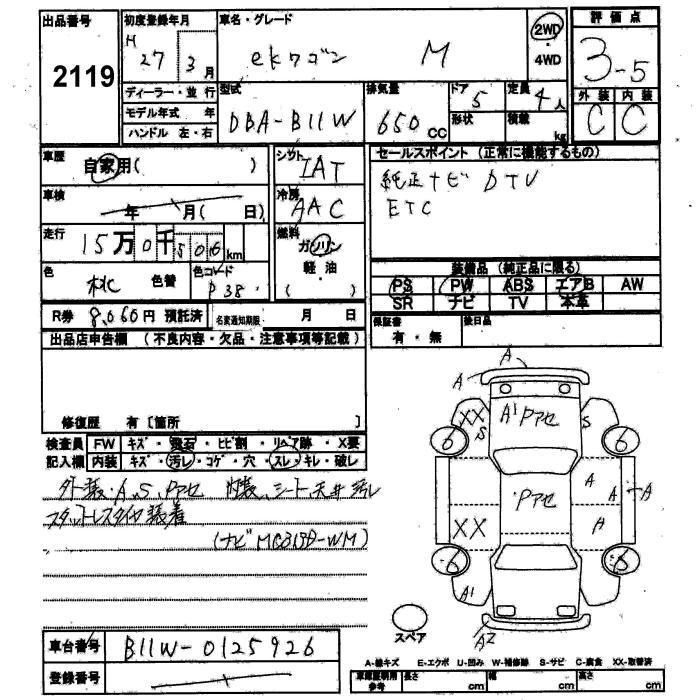 出品番号 2119
初度登録年月 H 27 3月
車名・グレード ekワゴン M
2WD・4WD
評価点 3-5
外装 C 内装 C
ディーラー・並行
モデル年式 年
ハンドル 左・右
型式 DBA-B11W
排気量 650cc
ドア 5 形状
定員 4人 積載 kg
車歴 自家用( )
シフト IAT
車検 年 月( 日)
冷房 AAC
走行 15万0千506km
燃料 ガソリン 軽油 ( )
色 桃 色替
色コード P38
R券 8,060円 預託済
名変通知期限 月 日
セールスポイント (正常に機能するもの)
純正ナビ DTV
ETC
装備品 (純正品に限る)
PS PW ABS エアB AW
SR ナビ TV 本革
保証書 有・無
後日品
出品店申告欄 (不良内容・欠品・注意事項等記載)
修復歴 有 [箇所 ]
検査員 FW キズ・飛石・ヒビ割・リペア跡・X要
記入欄 内装 キズ・汚レ・コゲ・穴・スレ・キレ・破レ
外装・A、S、Pアセ 内装、シート、天井汚レ
スタットレスタイヤ装着
(ナビMG313D-WM)
車台番号 B11W-0125926
登録番号
A
A
XX S A1 Pアセ S
6 6
Pアセ A A A
XX A
6 6
A1
A2
スペア
A-線キズ E-エクボ U-凹み W-補修跡 S-サビ C-腐食 XX-取替済
車庫証明用参考 長さ cm 幅 cm 高さ cm